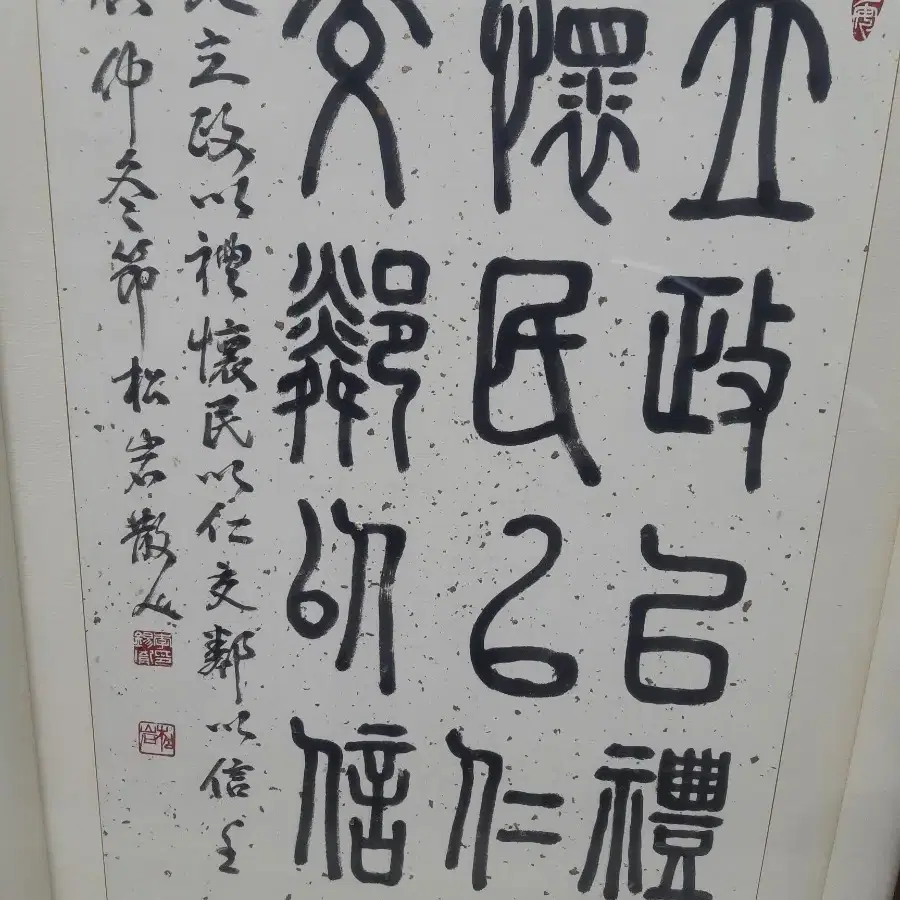 立政㠯禮
懷民㠯仁
交鄰以信
立政以禮懷民以仁交鄰以信壬
仲冬節松岩散人
松岩